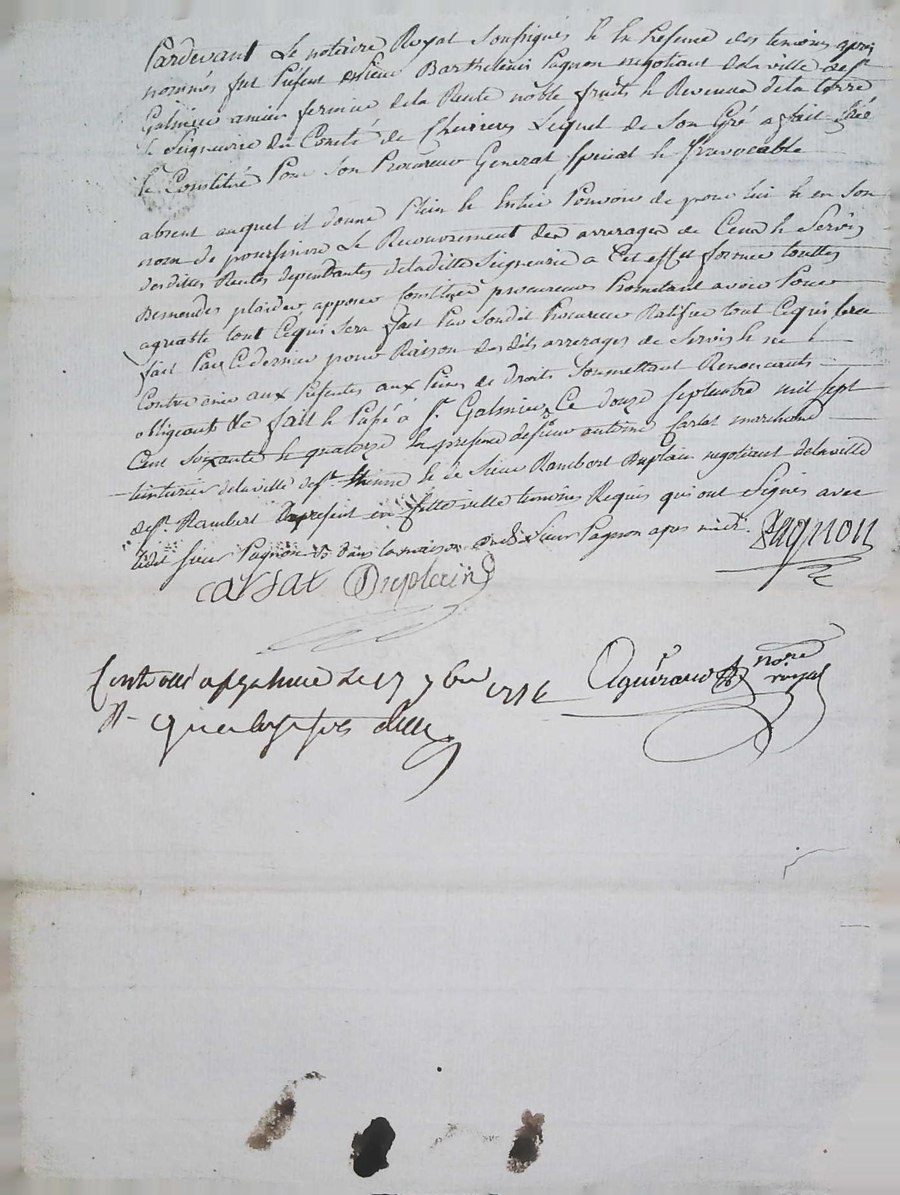 Pardevant Le notaire Royal Soussignés & En Présence des temoins apres
nommés fut Présent Sieur Barthelemi Pagnon negotiant dela ville de St
Galmier ancien fermier dela Rente noble fruits & Revenus dela terre
& Seigneurie du Comté de Chevrieres Lequel de Son Gré a fait Créé
& Constitué Pour Son Procureur General Special & Irrevocable
absent auquel il donne Plein & Entier Pouvoir de pour lui & en Son
nom de poursuivre Le Recouvrement des arrerages de Cens & Servis
desdittes Rentes dependantes deladitte Seigneurie a Cet effet former touttes
Demandes plaider apposer Constituer procureurs Promettant avoir Pour
agreable tout Cequi Sera fait Par Sondit Procureur Ratifier tout Cequi Sera
fait Par Cedernier pour Raison desdits arrerages de Servis & ne
Contrevenir aux Présentes aux Peines de Droits Soumettant Renonceants
obligeants & fait & Passé à St Galmier Ce douze Septembre mil Sept
Cent Soixante & quatorze En presence de Sieur antoine Carlat marchand
teinturier dela ville de St Etienne & de Sieur Rambert Duplain negotiant dela ville
de St Rambert de present en Cette ville temoins Requis qui ont Signés avec
Ledit Sieur Pagnon dans la maison dudit Sieur Pagnon apres midi. Pagnon
Duplain
Controllé a St galmier Le 17 7bre 1774
R
Aguiraud no.re royal